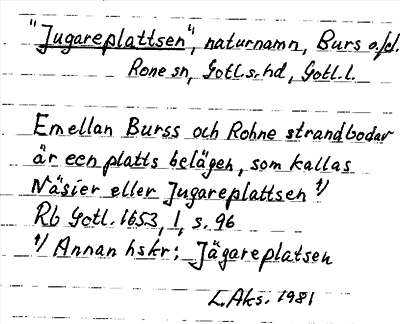 "Jugareplattsen", naturnamn, Burs o/el.
Rone sn, Gotl.s.hd, Gotl.l.
Emellan Burss och Rohne strandbodar
är een platts belägen, som kallas
Näsier eller Jugareplattsen 1)
Rb Gotl. 1653, 1, s. 96
1) Annan hskr: Jägareplatsen
L.Aks. 1981